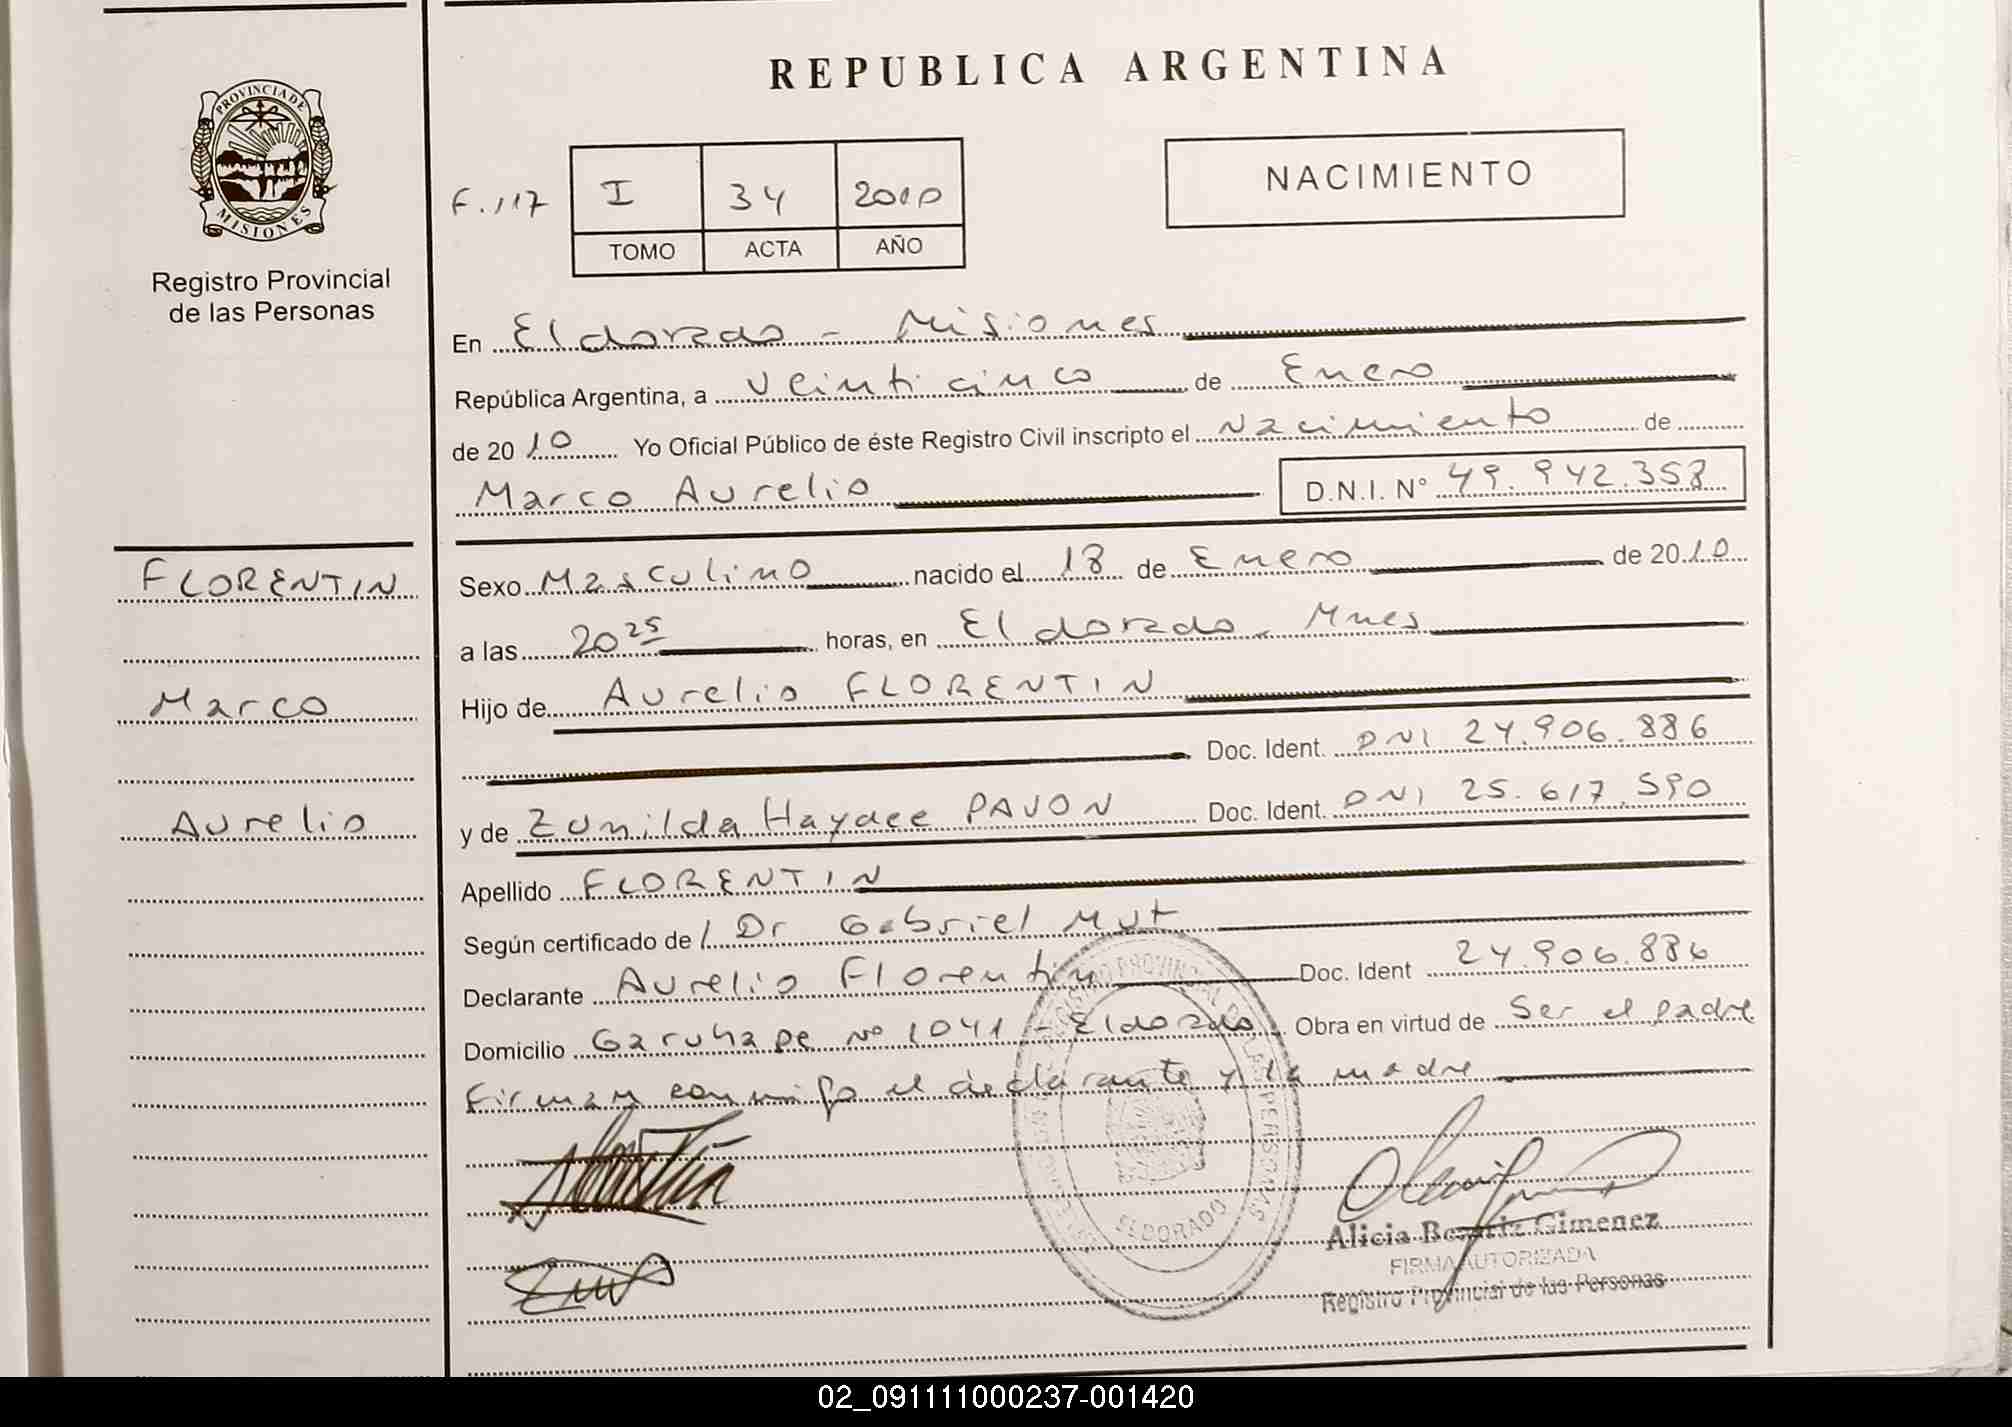 REPUBLICA ARGENTINA
PROVINCIA DE
MISIONES
Registro Provincial
de las Personas
F. 117
I 34 2010
TOMO ACTA AÑO
NACIMIENTO
En Eldorado - Misiones
República Argentina, a Veinticinco de Enero
de 2010 Yo Oficial Público de éste Registro Civil inscripto el Nacimiento de
Marco Aurelio D.N.I. N° 49.942.358
FLORENTIN
Marco
Aurelio
Sexo Masculino nacido el 18 de Enero de 2010
a las 20 25 horas, en Eldorado. Mnes
Hijo de Aurelio FLORENTIN
Doc. Ident. DNI 24.906.886
y de Zunilda Haydee PAVON Doc. Ident. DNI 25.617.590
Apellido FLORENTIN
Según certificado de / Dr Gabriel Mut
Declarante Aurelio Florentin Doc. Ident 24.906.886
Domicilio Garuhape Nº 1041 - Eldorado. Obra en virtud de Ser el padre
Firman conmigo el declarante y la madre
ELDORADO
Alicia Beatriz Gimenez
FIRMA AUTORIZADA
Registro Provincial de las Personas
02_091111000237-001420